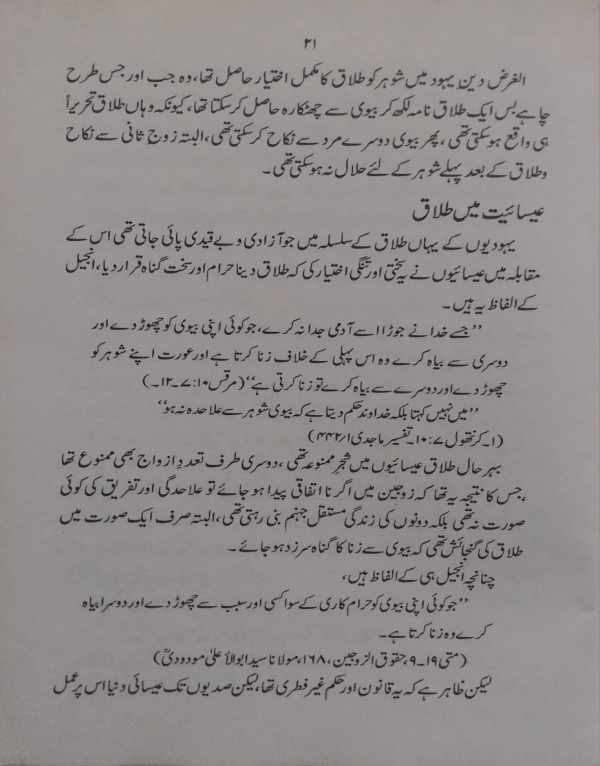 ۲۱
الغرض دینِ یہود میں شوہر کو طلاق کا مکمل اختیار حاصل تھا، وہ جب اور جس طرح
چاہے بس ایک طلاق نامہ لکھ کر بیوی سے چھٹکارہ حاصل کرسکتا تھا، کیونکہ وہاں طلاق تحریراً
ہی واقع ہوسکتی تھی، پھر بیوی دوسرے مرد سے نکاح کرسکتی تھی، البتہ زوج ثانی سے نکاح
وطلاق کے بعد پہلے شوہر کے لئے حلال نہ ہوسکتی تھی۔
عیسائیت میں طلاق
یہودیوں کے یہاں طلاق کے سلسلہ میں جو آزادی و بے قیدی پائی جاتی تھی اس کے
مقابلہ میں عیسائیوں نے یہ سختی اور تنگی اختیار کی کہ طلاق دینا حرام اور سخت گناہ قرار دیا، انجیل
کے الفاظ یہ ہیں۔
’’جسے خدا نے جوڑا اسے آدمی جدا نہ کرے، جو کوئی اپنی بیوی کو چھوڑ دے اور
دوسری سے بیاہ کرے وہ اس پہلی کے خلاف زنا کرتا ہے اور عورت اپنے شوہر کو
چھوڑ دے اور دوسرے سے بیاہ کرے تو زنا کرتی ہے‘‘ (مرقس ۱۰:۷۔۱۲۔)
’’میں نہیں کہتا بلکہ خداوند حکم دیتا ہے کہ بیوی شوہر سے علاحدہ نہ ہو‘‘
(۱۔کرنتھول ۷:۱۰۔تفسیر ماجدی ۴۴۲/۱)
بہر حال طلاق عیسائیوں میں شجرِ ممنوعہ تھی، دوسری طرف تعددِ ازواج بھی ممنوع تھا
،جس کا نتیجہ یہ تھا کہ زوجین میں اگر نا اتفاقی پیدا ہو جائے تو علاحدگی اور تفریق کی کوئی
صورت نہ تھی بلکہ دونوں کی زندگی مستقل جہنم بنی رہتی تھی، البتہ صرف ایک صورت میں
طلاق کی گنجائش تھی کہ بیوی سے زنا کا گناہ سرزد ہو جائے۔
چنانچہ انجیل ہی کے الفاظ ہیں،
’’جو کوئی اپنی بیوی کو حرام کاری کے سوا کسی اور سبب سے چھوڑ دے اور دوسرا بیاہ
کرے وہ زنا کرتا ہے۔
(متی ۱۹۔۹، حقوق الزوجین، ۱۶۸، مولانا سید ابوالأعلیٰ مودودیؒ)
لیکن ظاہر ہے کہ یہ قانون اور حکم غیر فطری تھا، لیکن صدیوں تک عیسائی دنیا اس پر عمل